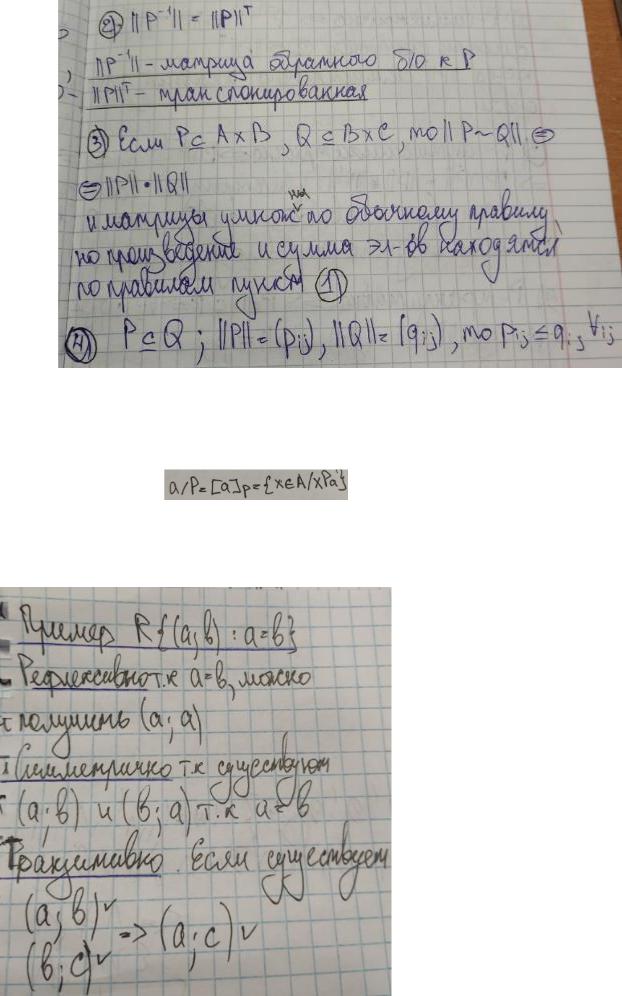 ② ||P⁻¹|| = ||P||ᵀ
||P⁻¹|| - матрица обратного б/о к P
||P||ᵀ - транспонированная
③ Если P ⊆ A×B, Q ⊆ B×C, то ||P∘Q|| ⊜
⊜ ||P||·||Q||
и матрицы умнож по обычному правилу,
но произведение и сумма эл-ов находятся
по правилам пункта ①
④ P ⊆ Q; ||P|| = (pᵢⱼ), ||Q|| = (qᵢⱼ), то pᵢⱼ ≤ qᵢⱼ ∀ᵢⱼ
a/P=[a]ₚ={x∈A/xPa}
Пример R{(a;b) : a=b}
Рефлексивно т.к a=b, можно
получить (a;a)
Симметрично т.к существуют
(a;b) и (b;a) т.к a=b
Транзитивно. Если существует
(a;b)✓
(b;c)✓ -> (a;c)✓